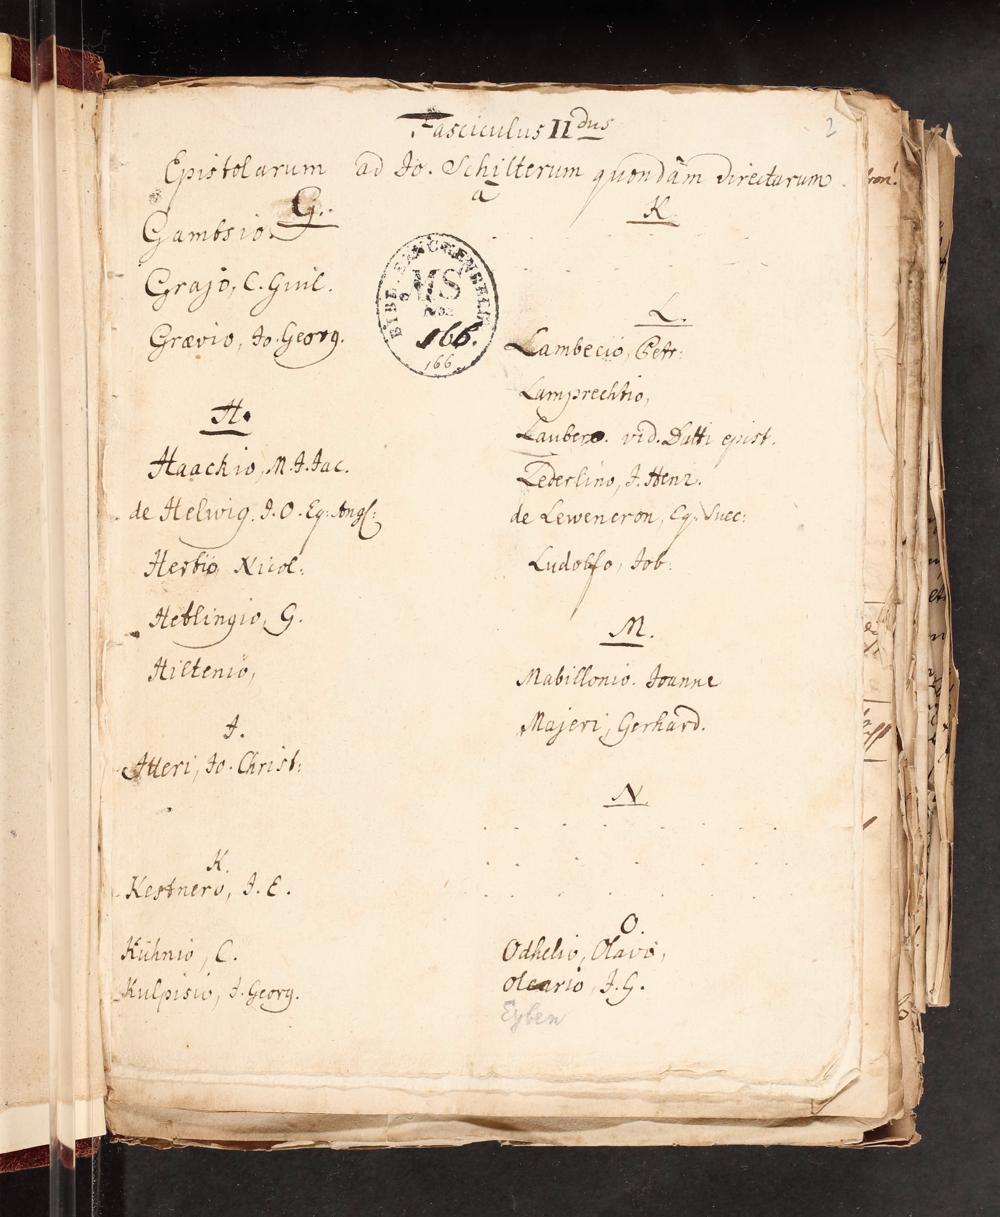 Fasciculus IIdus
2
Epistolarum ad Jo. Schilterum quondam directarum.
a
G.
Gambsio.
Grajo, C. Guil.
Grævio, Jo. Georg.
H.
Haackio, M. J. Jac.
de Helwig. J. O. Eq: Angl:
Hertio Nicol:
Heblingio, G.
Hiltenio,
J.
Itteri, Jo. Christ:
K.
Kestnero, J. E.
Kühnio, C.
Kulpisio, J. Georg.
K.
L.
Lambecio, Petr:
Lamprechtio,
Laubero. vid. Datti epist.
Lederlino, J. Henr.
de Leweneron, Eq: Suec:
Ludolfo, Job.
M.
Mabillonio. Joanne
Majeri, Gerhard.
N.
O.
Odhelio, Olavo,
Oleario, J. G.
Eyben
MS
166.
166